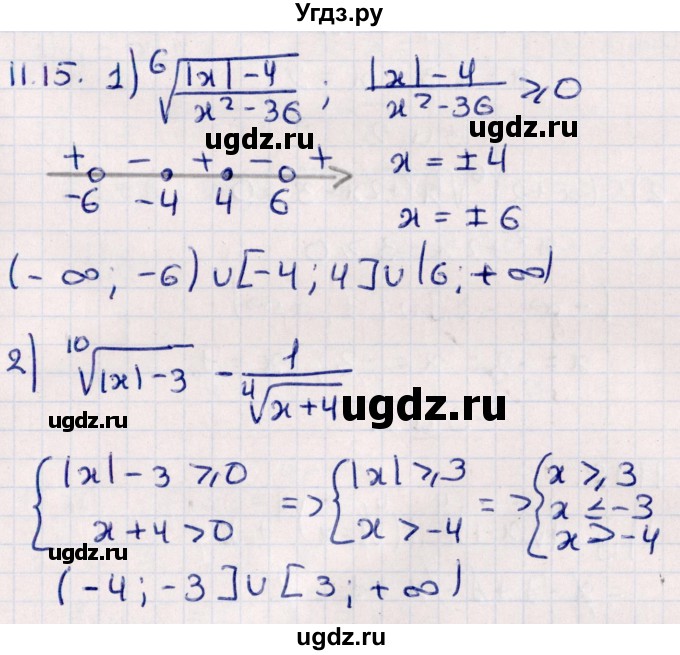 Угдз.ру
11.15. 1) ⁶√((|x|-4)/(x²-36)) ; (|x|-4)/(x²-36) ⩾ 0
ugdz.ru
ugdz.ru
+ - + - +
-6 -4 4 6
x = ±4
x = ±6
(-∞; -6) ∪ [-4; 4] ∪ (6; +∞)
2) ¹⁰√(|x|-3) - 1/⁴√(x+4)
ugdz.ru
ugdz.ru
{ |x|-3 ⩾ 0 => { |x| ⩾ 3 => { x ⩾ 3
x ≤ -3
x+4 > 0 x > -4 x > -4
ugdz.ru
ugdz.ru
(-4; -3] ∪ [3; +∞)
ugdz.ru